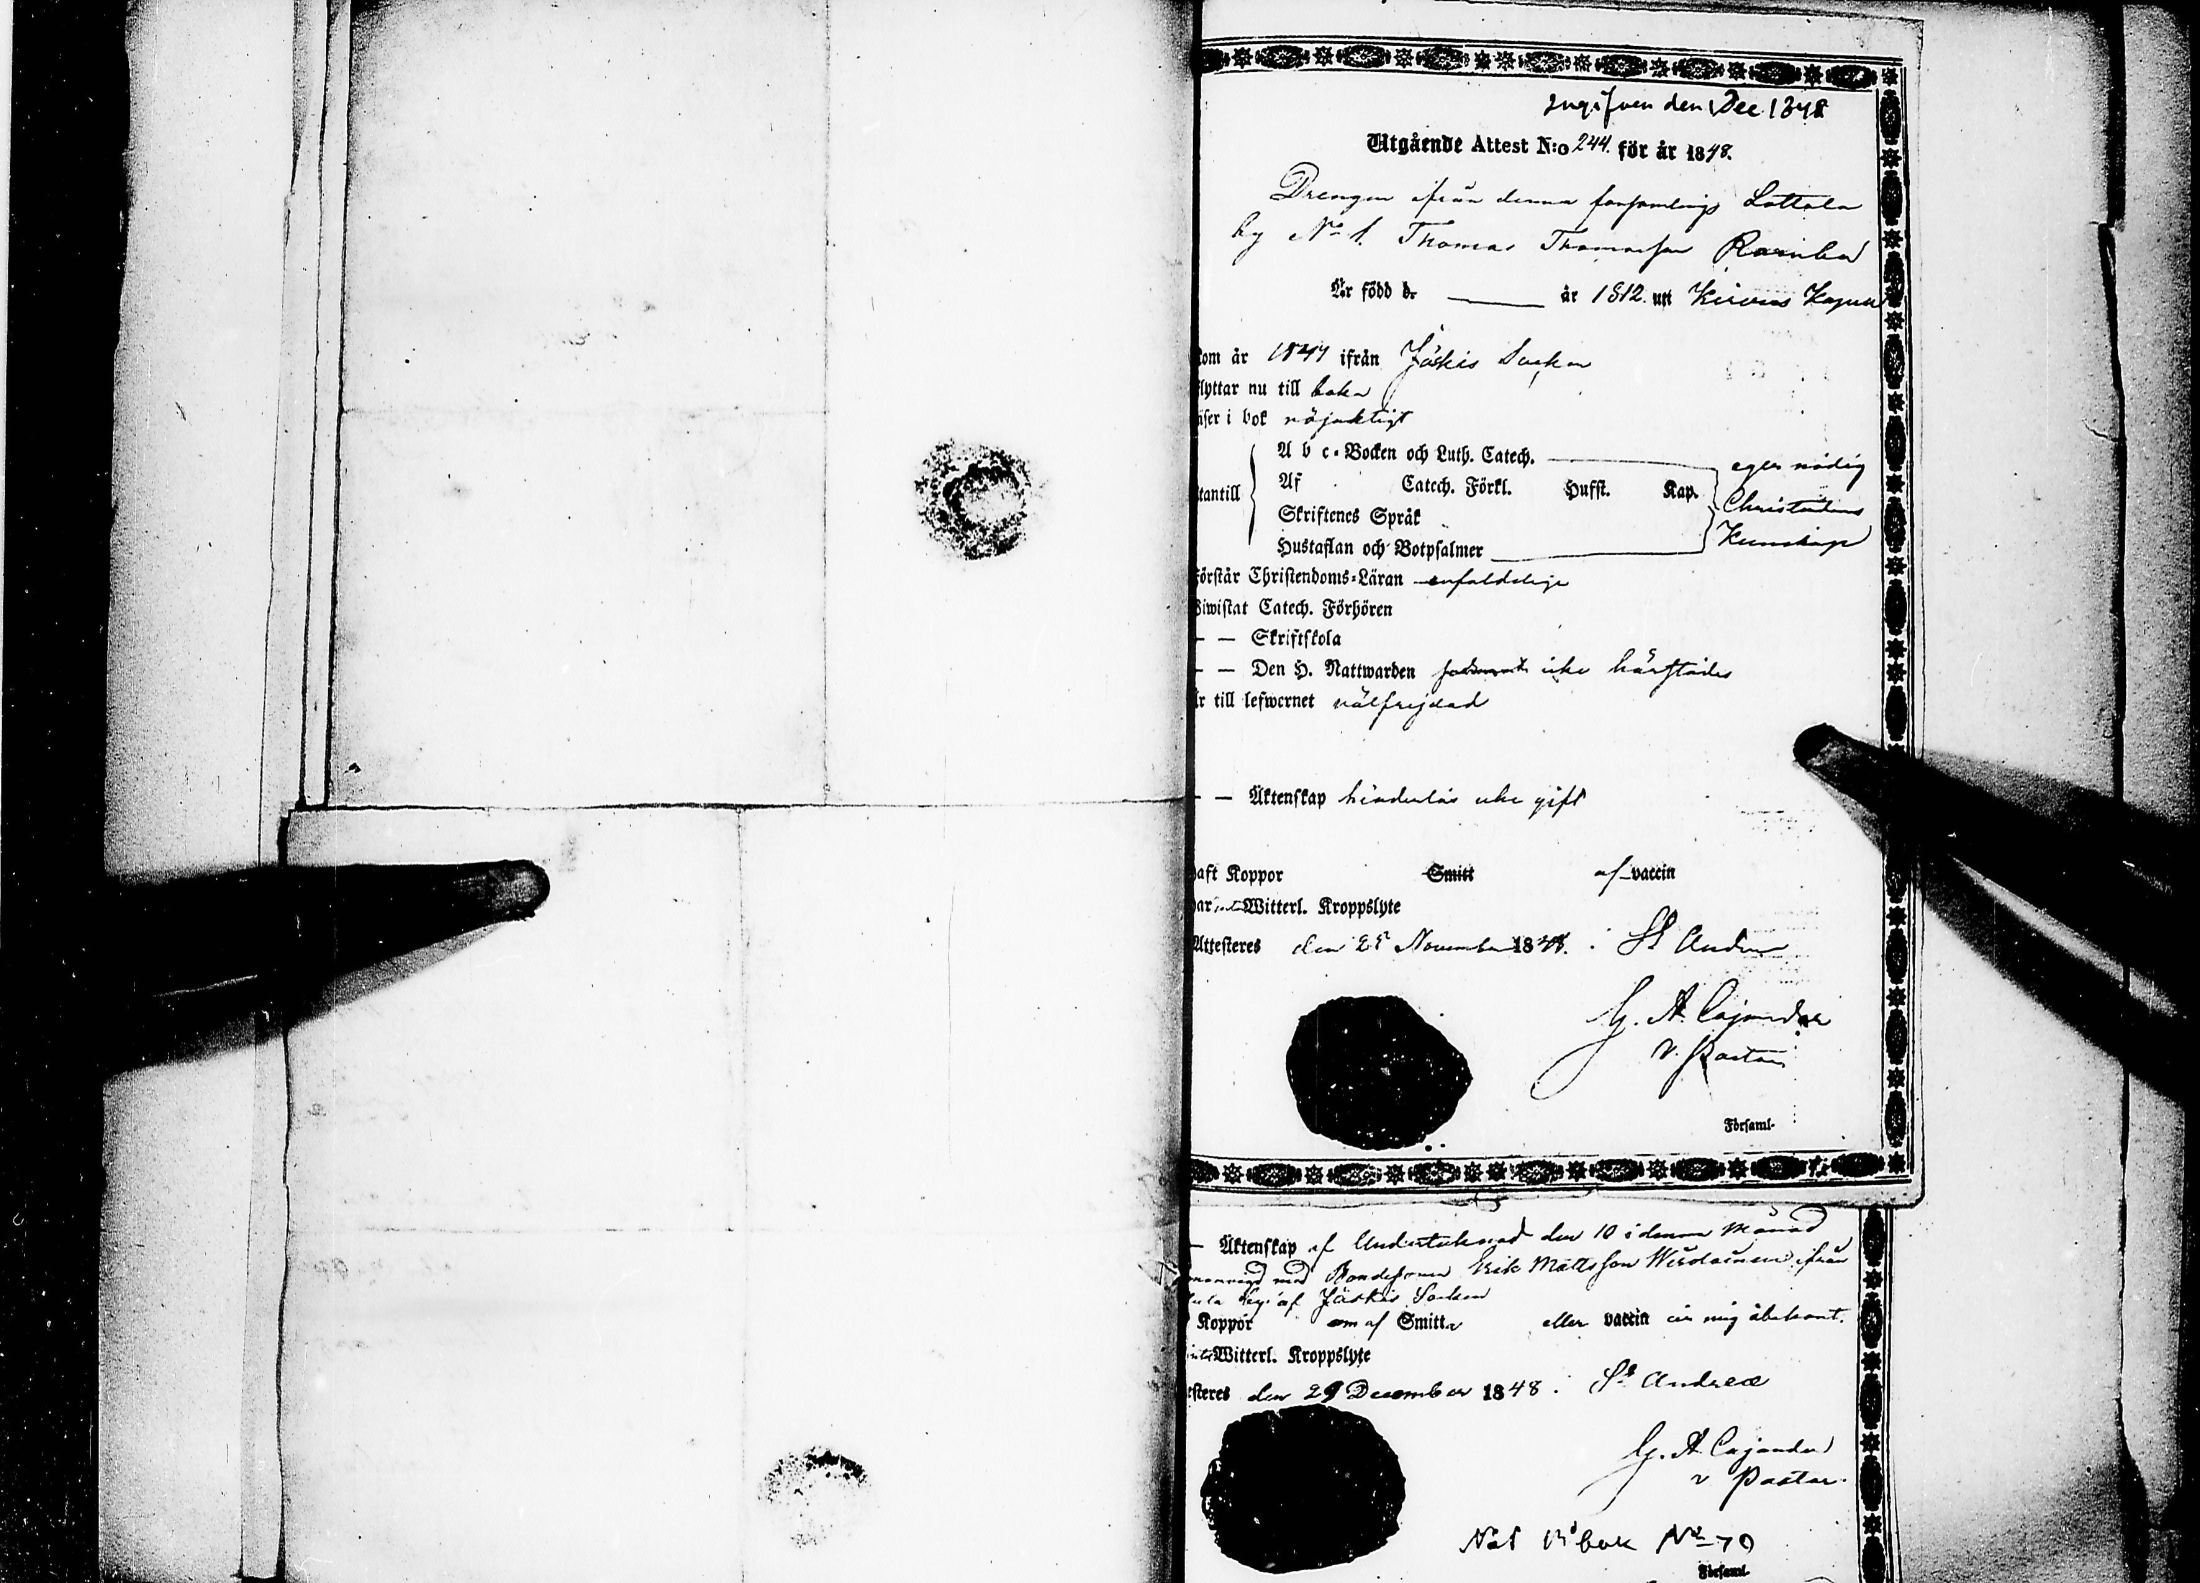 Ingifven den 1 Dec. 1848
Utgående Attest N:o 244. för år 1848.
Drengen ifrån denna församlings Lottola
by No 1. Thomas Thomasson
Är född d. — år 1812. uti Kirvus Kapell
kom år 1844 ifrån Jäskis Socken
flyttar nu till baka
läser i bok nöjaktigt
A b c-Bocken och Luth. Catech. — eger nödig
utantill Af Catech. Förkl. Husst. Kap. Christendoms
Skriftenes Språk
Hustaflan och Botpsalmer — Kunskap
Förstår Christendoms-Läran enfaldelige
Biwistat Catech. Förhören
— — Skriftskola
— — Den H. Nattwarden icke härstädes
Är till lefwernet välfrejdad
— — Äktenskap hinderlös icke gift
haft Koppor Smitt af vaccin
har Witterl. Kroppslyte
Attesteres den 25 November 1848. St Andrea
G. A. Cajander
V. Pastor
Församl.
— Äktenskap af Undertecknad den 10 i denna Månad
med Bondesonen Erik Mattsson ifrån
by af Jäskis Socken
Koppor om af Smitta eller vaccin är mig obekant.
Witterl. Kroppslyte
Attesteres den 29 December 1848. St Andreæ
G. A. Cajander
v Pastor.
bok No 70
Församl.